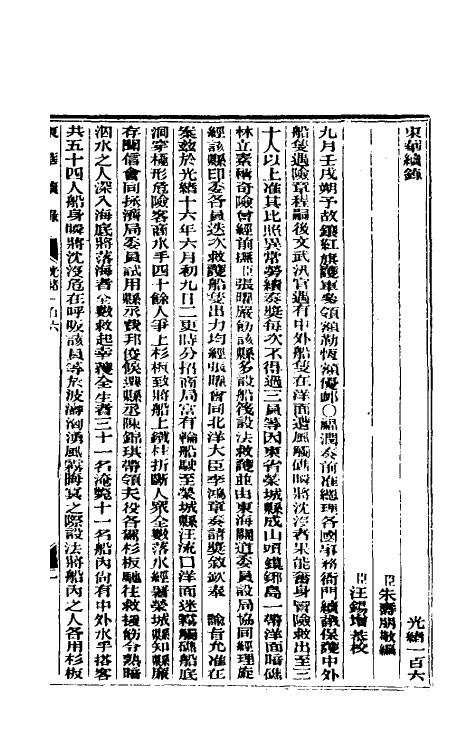 東華續錄
光緒一百六
臣朱壽朋敬編
臣汪錫增恭校
九月壬戌朔予故鑲紅旗護軍參領額勒恆額優卹○福潤奏前准總理各國事務衙門續議保護中外
船隻遇險章程嗣後文武汛官遇有中外船隻在洋面遭風觸礁瞬將沈沒者果能奮身冒險救出至三
十人以上准其比照異常勞績奏獎每次不得過三員等因東省榮城縣成山頭鎮鎁島一帶洋面暗礁
林立素稱奇險曾經前撫臣張曜嚴飭該縣多設船筏設法救護並由東海關道委員設局協同經理庭
經該縣印委各員迭次救護船隻出力均經張曜會同北洋大臣李鴻章奏請獎敘欽奉 諭旨允准在
案茲於光緒十六年六月初九日二更時分招商局富有輪船駛至榮城縣汪流口洋面迷霧觸礁船底
洞穿極形危險客商水手四十餘人爭上杉板致將船上鐵柱折斷人眾全數落水經署榮城縣知縣廉
存聞信會同拯濟局委員試用縣丞費邦俊候選縣丞陳錦琪帶領夫役各駕杉板馳往救援飭令熟暗
泅水之人深入海底將落海者全數救起幸穫全生者三十一名淹斃十一名船內尙有中外水手搭客
共五十四人船身瞬將沈沒危在呼吸該員等於波濤洶湧風霧晦冥之際設法將船內之人各用杉板
東華續錄 光緒一百六 一